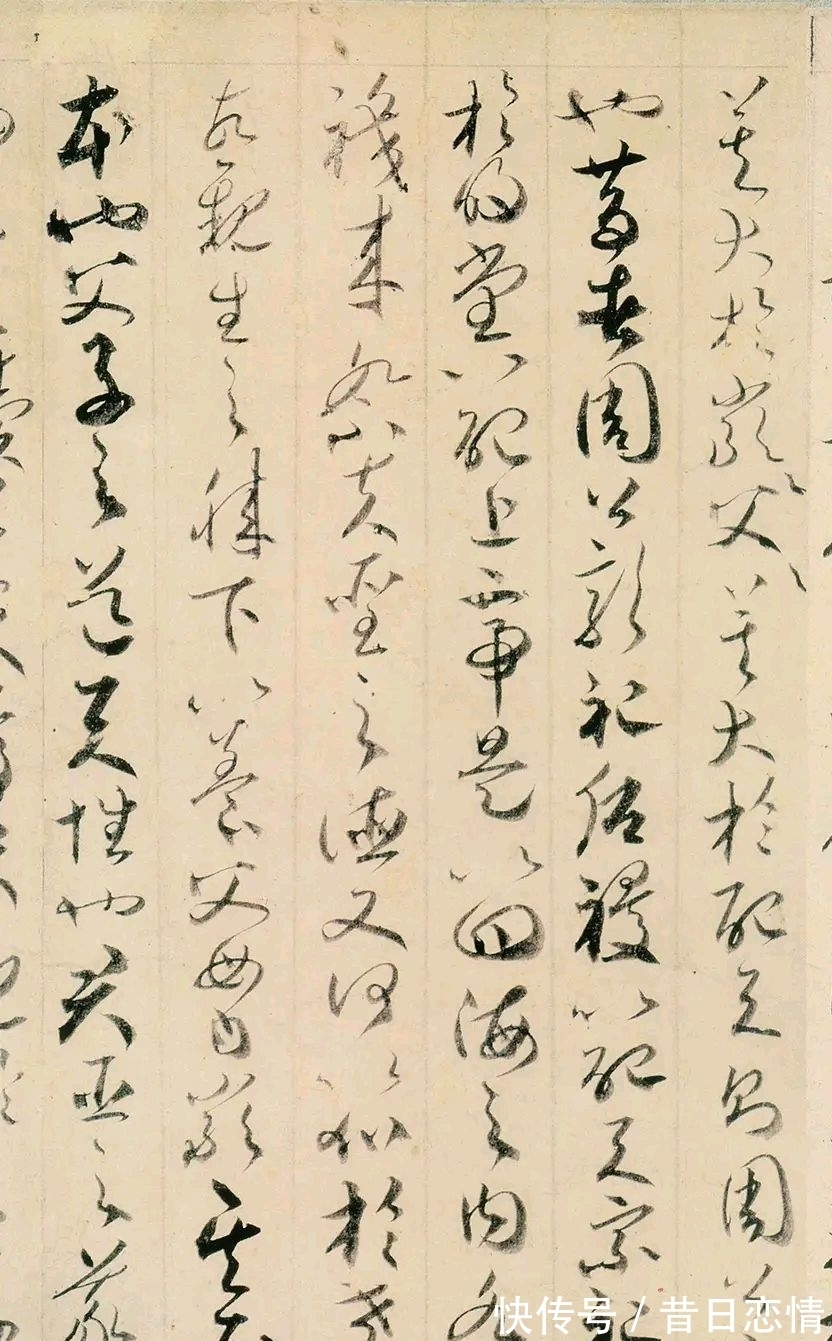 莫大於嚴〻父〻莫大於配天則周公
也昔者周公郊祀后稷以配天宗祀
於明堂以配上帝是以四海之內各
職來祭夫聖之德又何以加於孝
故親生之膝下以養父母日嚴其
本也父子之道天性也君臣之義
快传号/昔日恋情